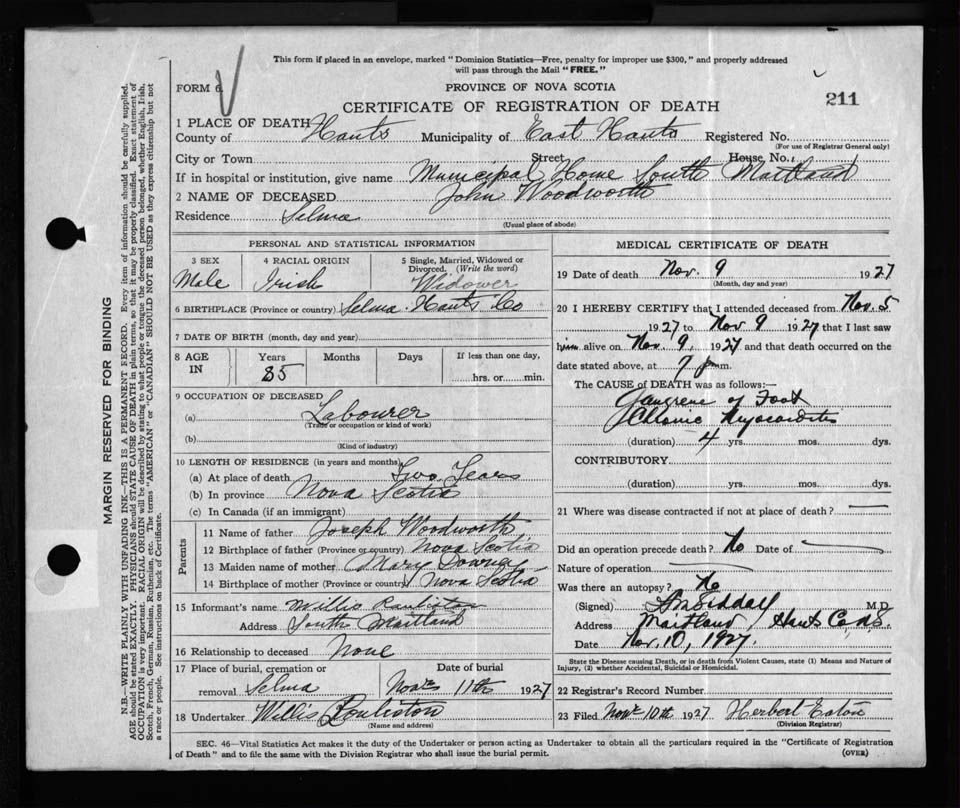 This form if placed in an envelope, marked "Dominion Statistics—Free, penalty for improper use $300," and properly addressed
will pass through the Mail "FREE."
FORM 6.
PROVINCE OF NOVA SCOTIA
CERTIFICATE OF REGISTRATION OF DEATH
211
1 PLACE OF DEATH
County of Hants Municipality of East Hants Registered No.
(For use of Registrar General only)
City or Town Street House No.
If in hospital or institution, give name Municipal Home South Maitland
2 NAME OF DECEASED John Woodworth
Residence Selma
(Usual place of abode)
PERSONAL AND STATISTICAL INFORMATION
3 SEX 4 RACIAL ORIGIN 5 Single, Married, Widowed or
Divorced. (Write the word)
Male Irish Widower
6 BIRTHPLACE (Province or country) Selma Hants Co
7 DATE OF BIRTH (month, day and year)
8 AGE IN Years Months Days If less than one day,
85 hrs. or min.
9 OCCUPATION OF DECEASED
(a) Labourer
(Trade or occupation or kind of work)
(b)
(Kind of industry)
10 LENGTH OF RESIDENCE (in years and months)
(a) At place of death Two Years
(b) In province Nova Scotia
(c) In Canada (if an immigrant)
Parents
11 Name of father Joseph Woodworth
12 Birthplace of father (Province or country) Nova Scotia
13 Maiden name of mother Mary
14 Birthplace of mother (Province or country) Nova Scotia
15 Informant's name Willis
Address South Maitland
16 Relationship to deceased None
17 Place of burial, cremation or Date of burial
removal Selma Nov 11th 1927
18 Undertaker Willis
(Name and address)
MEDICAL CERTIFICATE OF DEATH
19 Date of death Nov. 9 1927
(Month, day and year)
20 I HEREBY CERTIFY that I attended deceased from Nov. 5
1927 to Nov 9 1927 that I last saw
him alive on Nov. 9, 1927 and that death occurred on the
date stated above, at 7 p m.
The CAUSE of DEATH was as follows:—
Gangrene of Foot
Chronic Myocarditis
(duration) 4 yrs. mos. dys.
CONTRIBUTORY.
(duration) yrs. mos. dys.
21 Where was disease contracted if not at place of death?
Did an operation precede death? No Date of
Nature of operation
Was there an autopsy? No
(Signed) Siddall M.D.
Address Maitland Hants Co. N.S.
Date Nov. 10, 1927.
State the Disease causing Death, or in death from Violent Causes, state (1) Means and Nature of
Injury, (2) whether Accidental, Suicidal or Homicidal.
22 Registrar's Record Number
23 Filed Nov 10th 1927 Herbert Eaton
(Division Registrar)
SEC. 46—Vital Statistics Act makes it the duty of the Undertaker or person acting as Undertaker to obtain all the particulars required in the "Certificate of Registration
of Death" and to file the same with the Division Registrar who shall issue the burial permit.
(OVER)
MARGIN RESERVED FOR BINDING
N.B.—WRITE PLAINLY WITH UNFADING INK—THIS IS A PERMANENT RECORD. Every item of information should be carefully supplied.
AGE should be stated EXACTLY. PHYSICIANS should STATE CAUSE OF DEATH in plain terms, so that it may be properly classified. Exact statement of
OCCUPATION is very important. RACIAL ORIGIN will be described by stating to what people or tongue the deceased person belonged, whether English, Irish,
Scotch, French, German, Russian, Ruthenian, etc. The terms "AMERICAN" or "CANADIAN" SHOULD NOT BE USED as they express citizenship but not
a race or people. See instructions on back of Certificate.